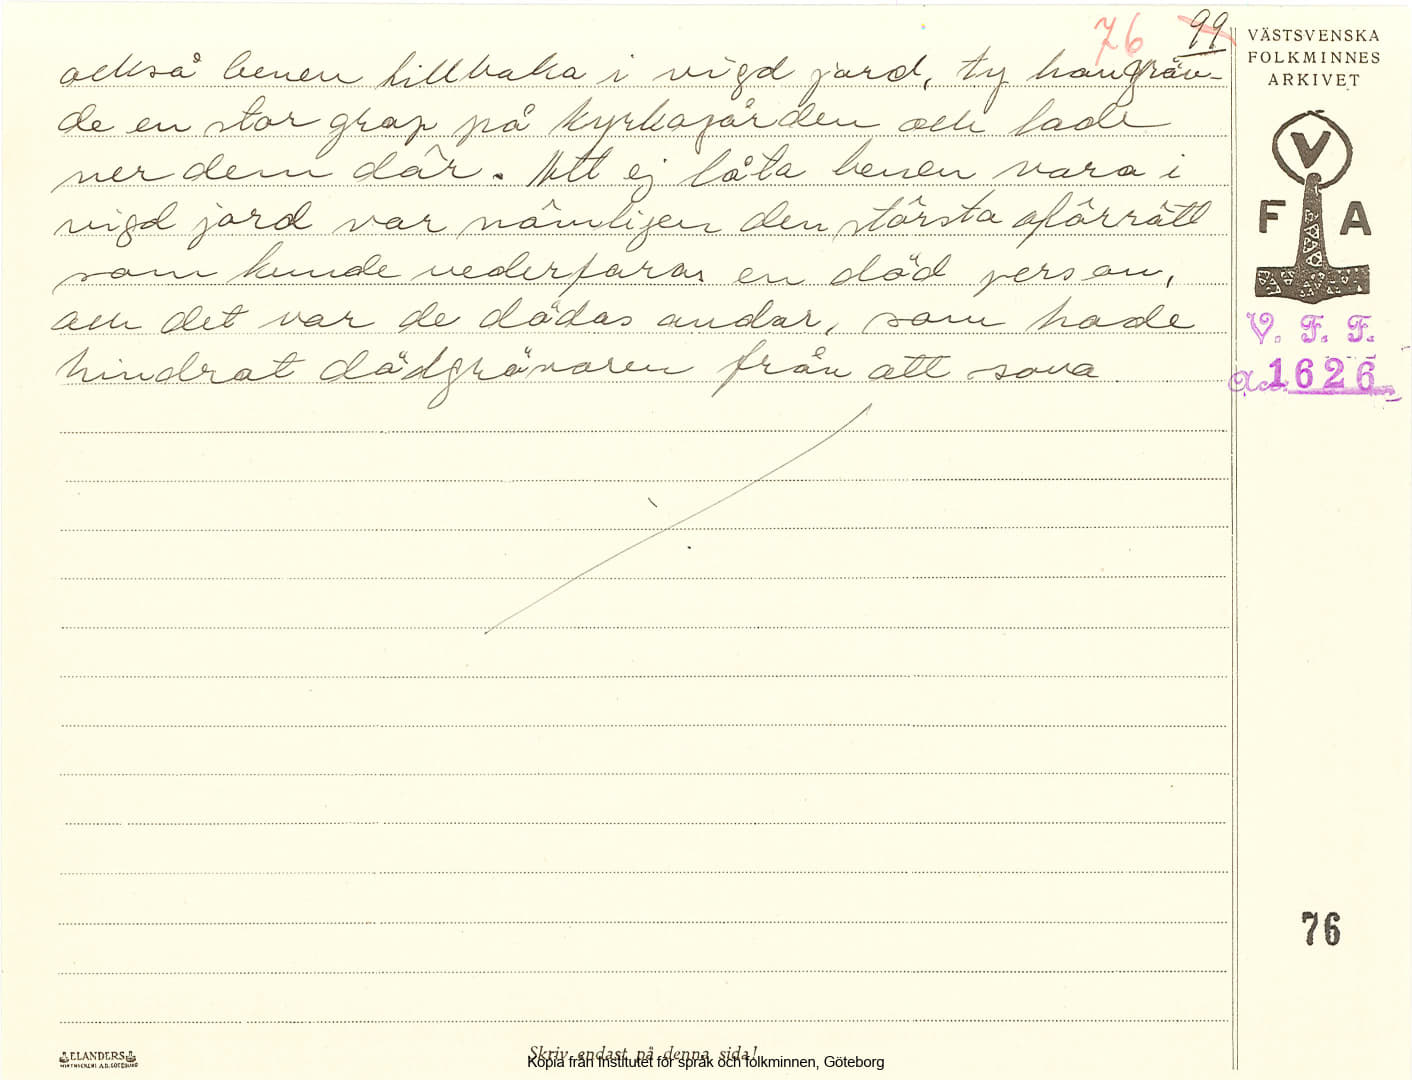 76 99
också benen tillbaka i vigd jord, ty han gräv-
de en stor grop på kyrkogården och lade
ner dem där. Att ej låta benen vara i
vigd jord var nämligen den största oförrätt
som kunde vederfaras en död person,
och det var de dödas andar, som hade
hindrat dödgrävaren från att sova
VÄSTSVENSKA
FOLKMINNES
ARKIVET
V
F A
V. F. F.
Acc. 1626
76
ELANDERS
Skriv endast på denna sida!
Kopia från Institutet för språk och folkminnen, Göteborg